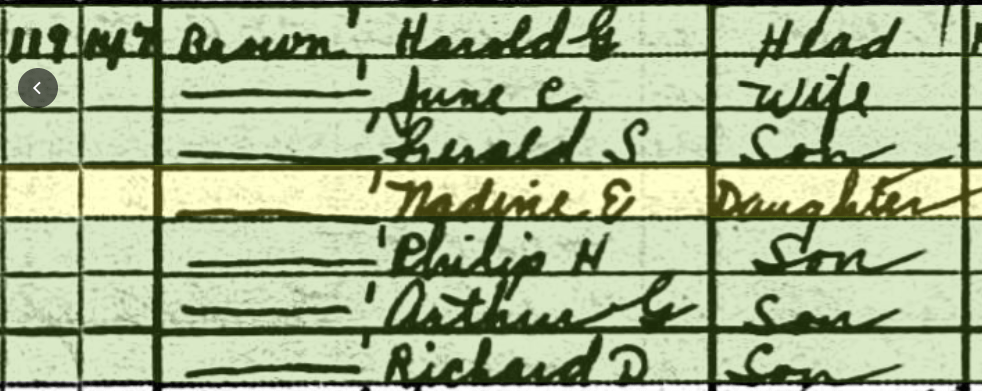 119 147 Brown, Harold G Head
—— June C Wife
—— Gerald S Son
—— Nadine E Daughter
—— Philip H Son
—— Arthur G Son
—— Richard D Son